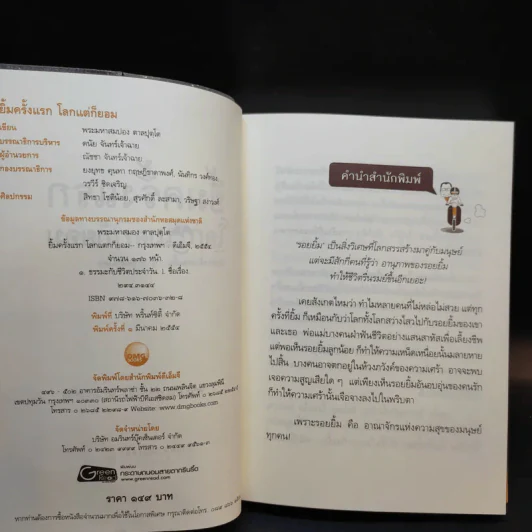 ยิ้มครั้งแรก โลกแต่ก็ยอม
เขียน พระมหาสมปอง ตาลปุตฺโต
บรรณาธิการบริหาร ดนัย จันทร์เจ้าฉาย
ผู้อำนวยการ ณัชชา จันทร์เจ้าฉาย
กองบรรณาธิการ
ศิลปกรรม
ข้อมูลทางบรรณานุกรมของสำนักหอสมุดแห่งชาติ
พระมหาสมปอง ตาลปุตฺโต
ยิ้มครั้งแรก โลกแตกก็ยอม.-- กรุงเทพฯ : ดีเอ็มจี, ๒๕๕๔
จำนวน ๑๗๖ หน้า
๑. ธรรมะกับชีวิตประจำวัน I ชื่อเรื่อง
๒๙๔.๓๑๔๔
พิมพ์ที่ บริษัท พริ้นท์ซิตี้ จำกัด
พิมพ์ครั้งที่ ๑ มีนาคม ๒๕๕๔
DMG
จัดพิมพ์โดยสำนักพิมพ์ดีเอ็มจี
Website: www.dmgbooks.com
จัดจำหน่ายโดย
บริษัท อมรินทร์บุ๊คเซ็นเตอร์ จำกัด
Green Read
กระดาษถนอมสายตากรีนรี้ด
www.greenread.com
ราคา ๑๔๙ บาท
คำนำสำนักพิมพ์
'รอยยิ้ม' เป็นสิ่งวิเศษที่โลกสรรสร้างมาคู่กับมนุษย์
แต่จะมีสักกี่คนที่รู้ว่า อานุภาพของรอยยิ้ม
ทำให้ชีวิตรื่นรมย์ขึ้นอีกเยอะ!
เคยสังเกตไหมว่า ทำไมหลายคนที่ไม่หล่อไม่สวย แต่ทุก
ครั้งที่ยิ้ม ก็เหมือนกับว่าโลกทั้งโลกสว่างไสวไปกับรอยยิ้มของเขา
และเธอ พ่อแม่บางคนฝ่าฟันชีวิตอย่างแสนสาหัสเพื่อเลี้ยงชีพ
แต่พอเห็นรอยยิ้มลูกน้อย ก็ทำให้ความเหน็ดเหนื่อยนั้นมลายหาย
ไปสิ้น บางคนอาจตกอยู่ในห้วงภวังค์ของความเศร้า อาจจะพบ
เจอความสูญเสียใด ๆ แต่เพียงเห็นรอยยิ้มอันอบอุ่นของคนรัก
ก็ทำให้ความเศร้านั้นเจือจางลงไปในพริบตา
เพราะรอยยิ้ม คือ อาณาจักรแห่งความสุขของมนุษย์
ทุกคน!